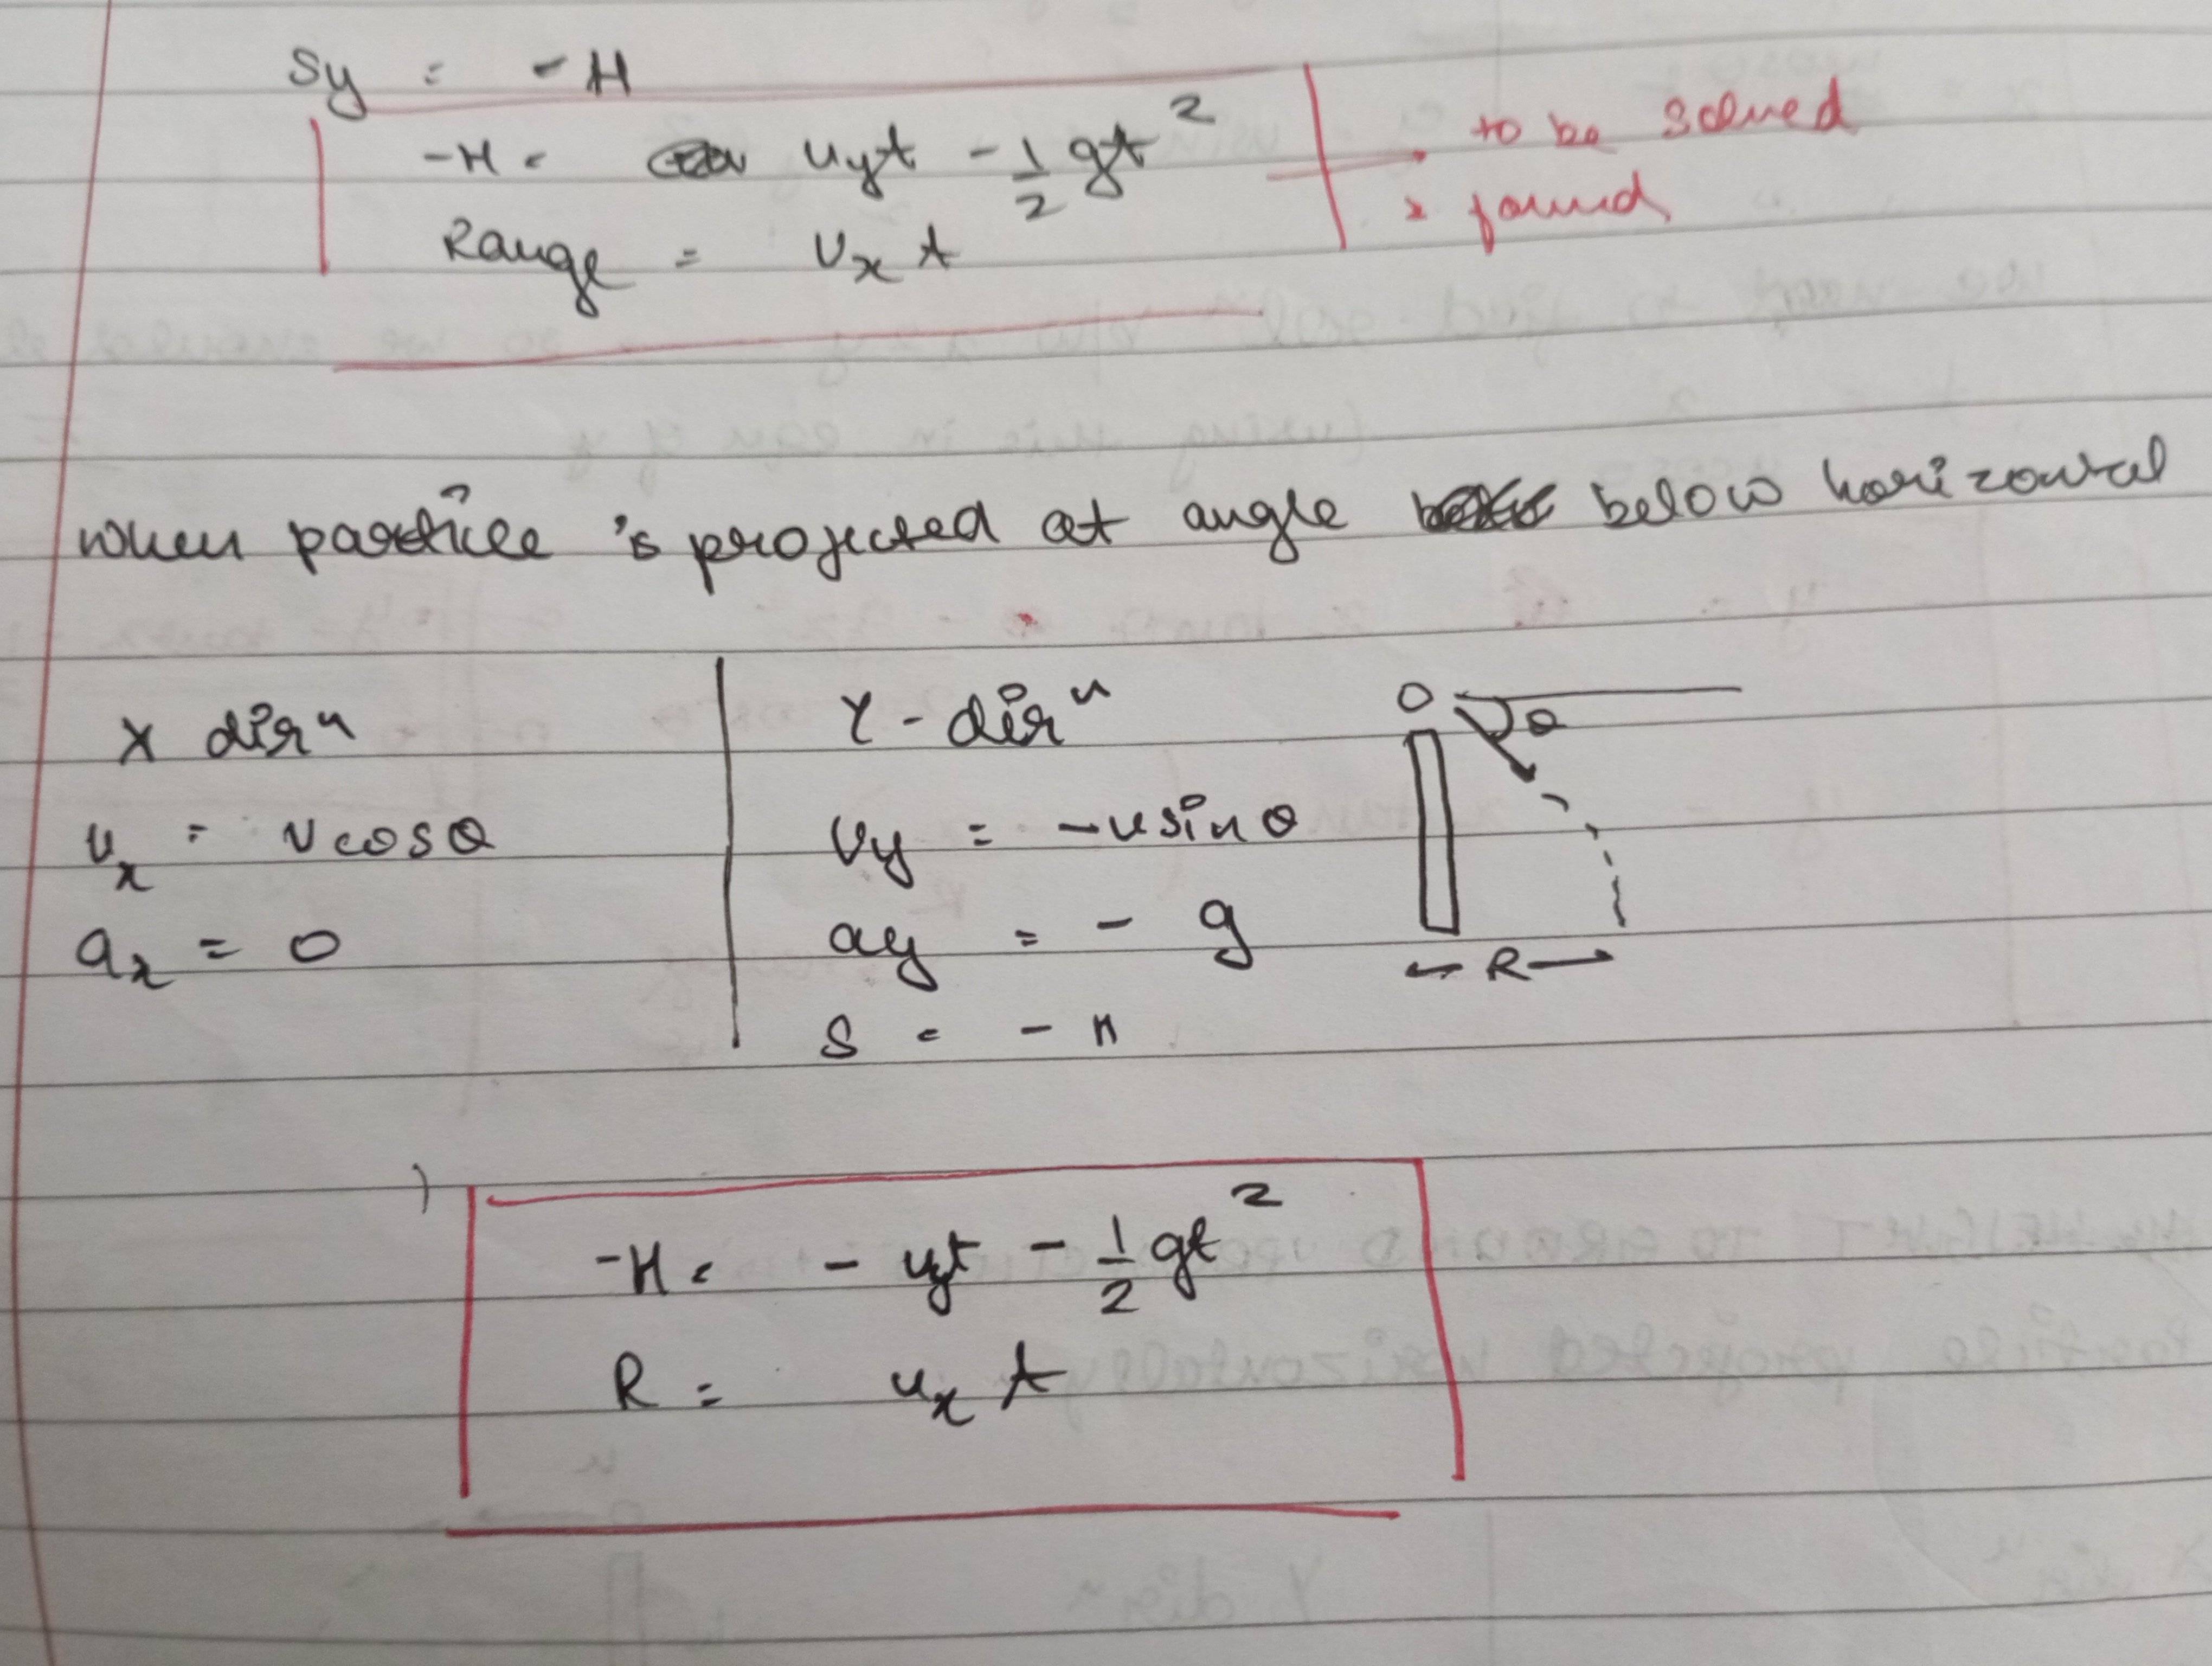 Sy = - H
-H = uyt - 1/2 gt² to be solved
Range = Ux t & found
when particle is projected at angle below horizontal
X dirⁿ
ux = v cosθ
ax = 0
Y - dirⁿ
Uy = -u sinθ
ay = - g
S = - H
O θ
R
-H = - uyt - 1/2 gt²
R = ux t